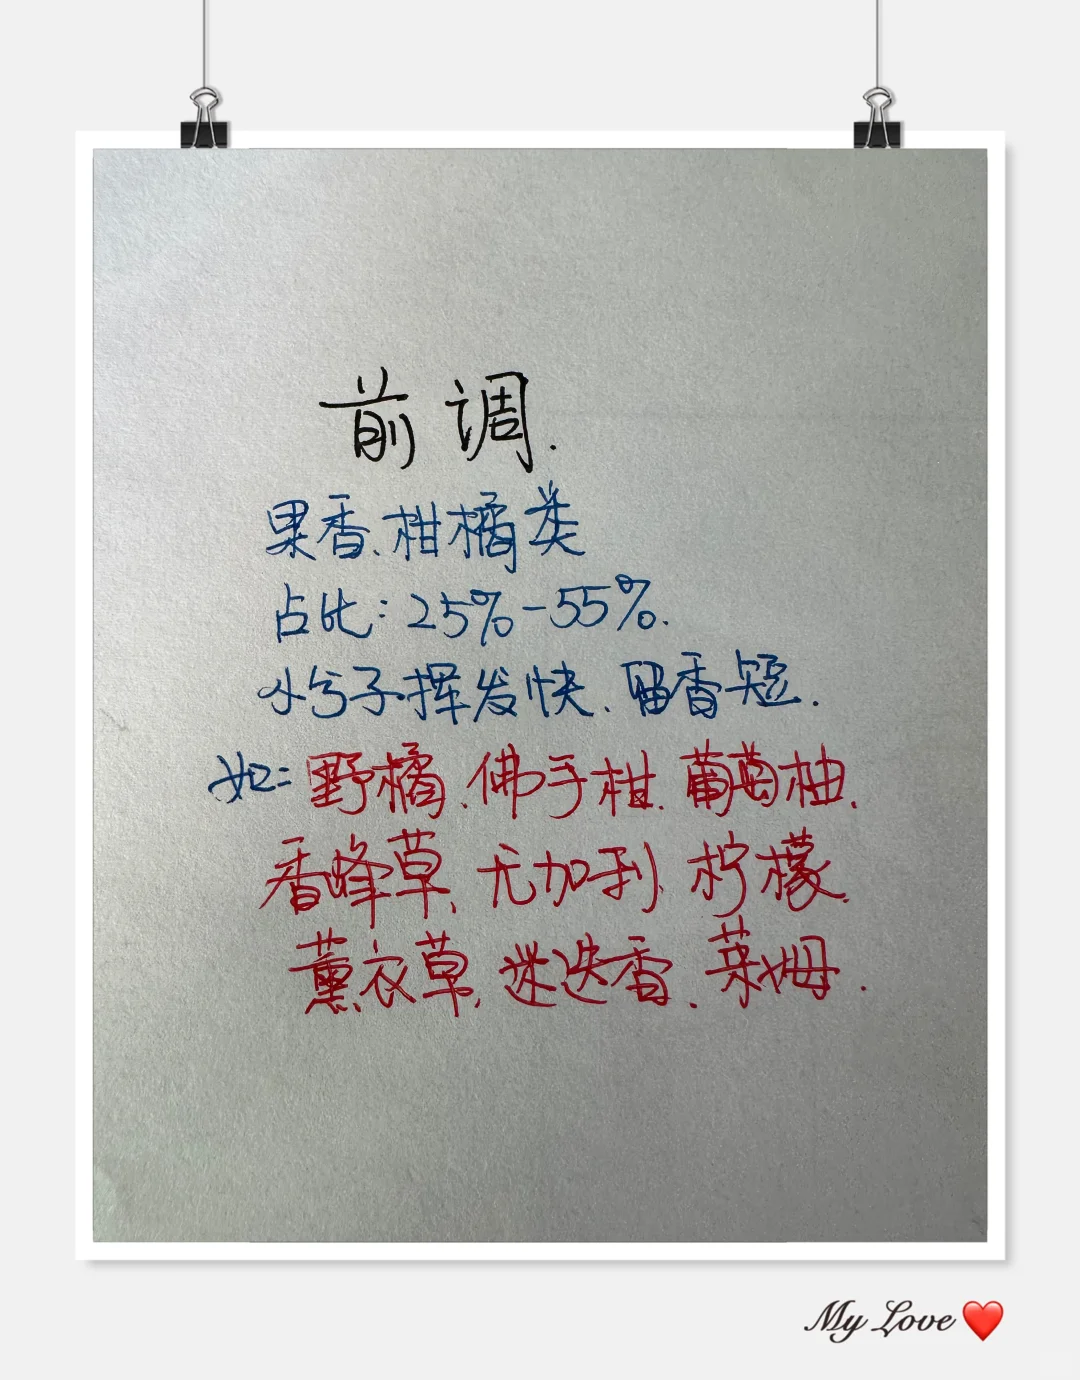 前调.
果香、柑橘类
占比:25%-55%.
小分子.挥发快、留香短.
如:野橘、佛手柑、葡萄柚、
香蜂草、尤加利、柠檬、
薰衣草、迷迭香、莱姆.
My Love❤️